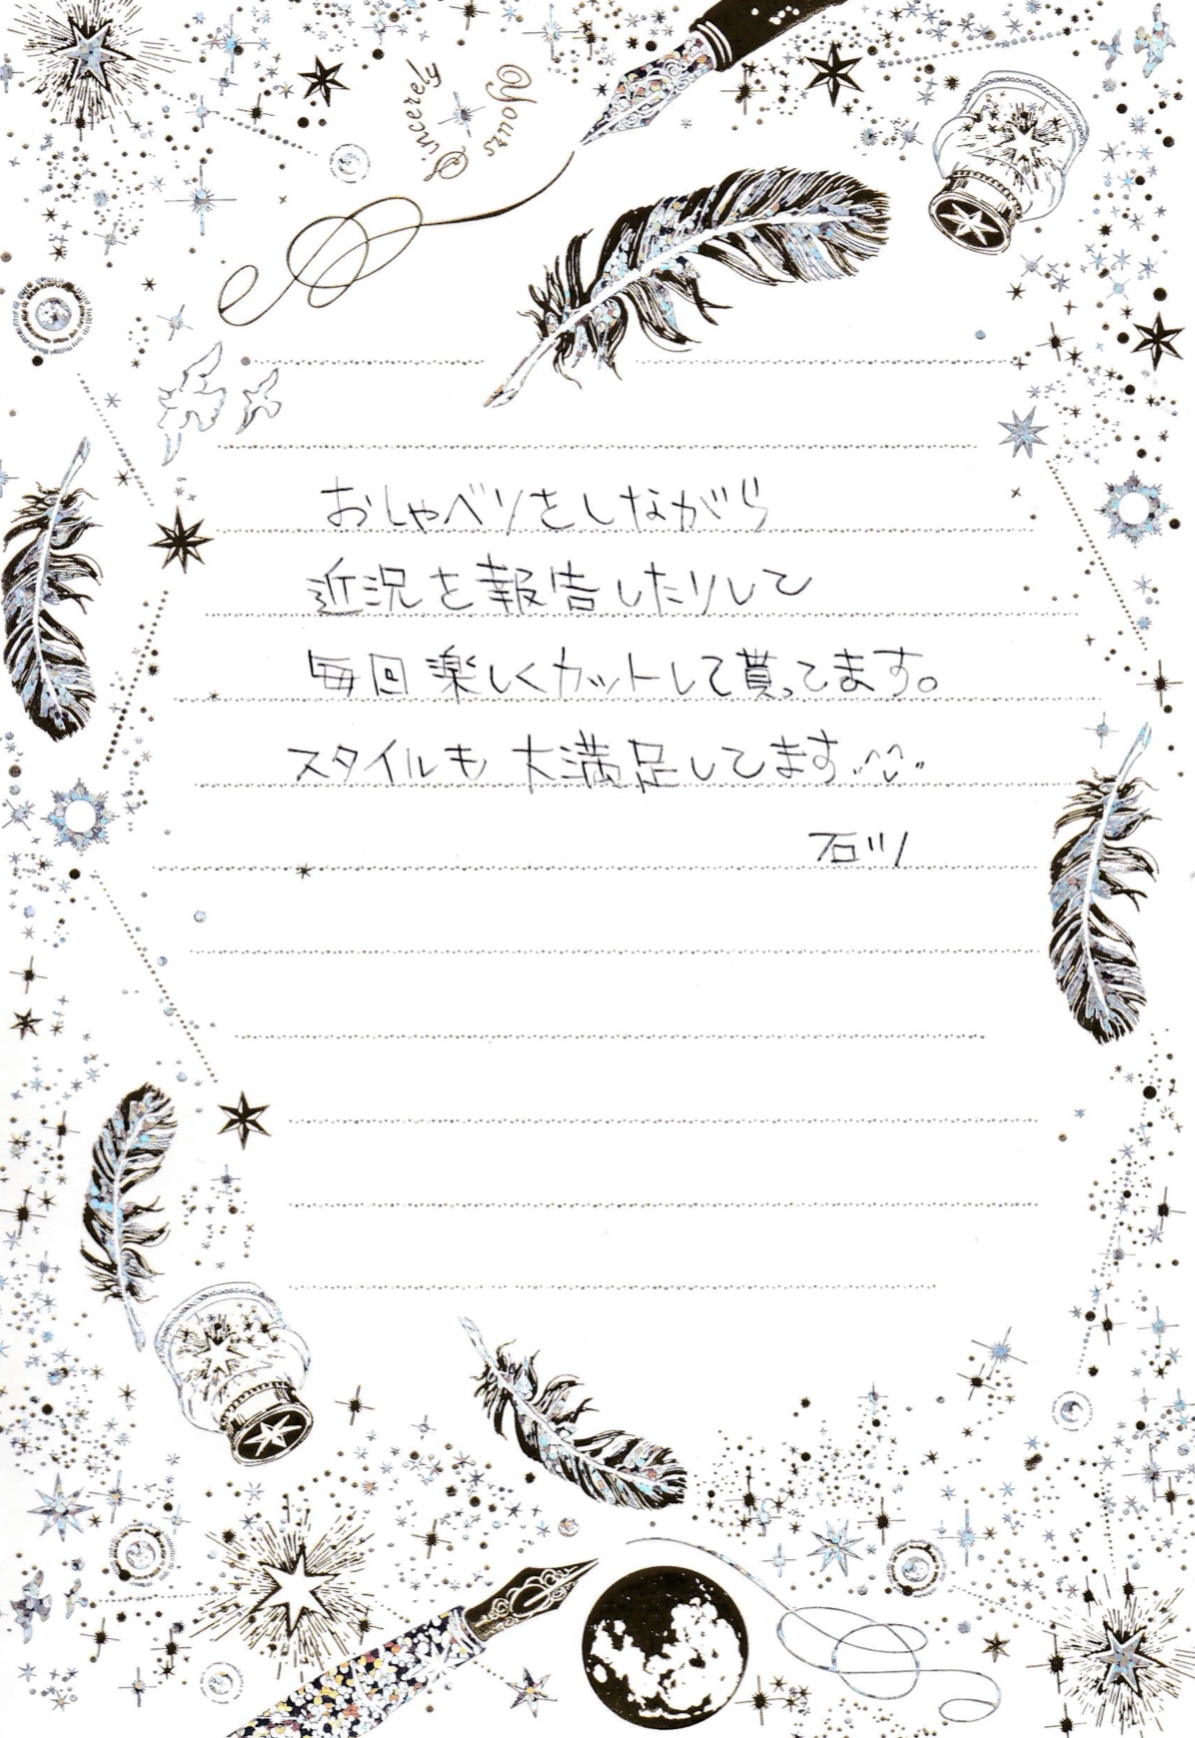 Sincerely
Yours
おしゃべりをしながら
近況を報告したりして
毎回楽しくカットして貰ってます。
スタイルも大満足してます^^
石川